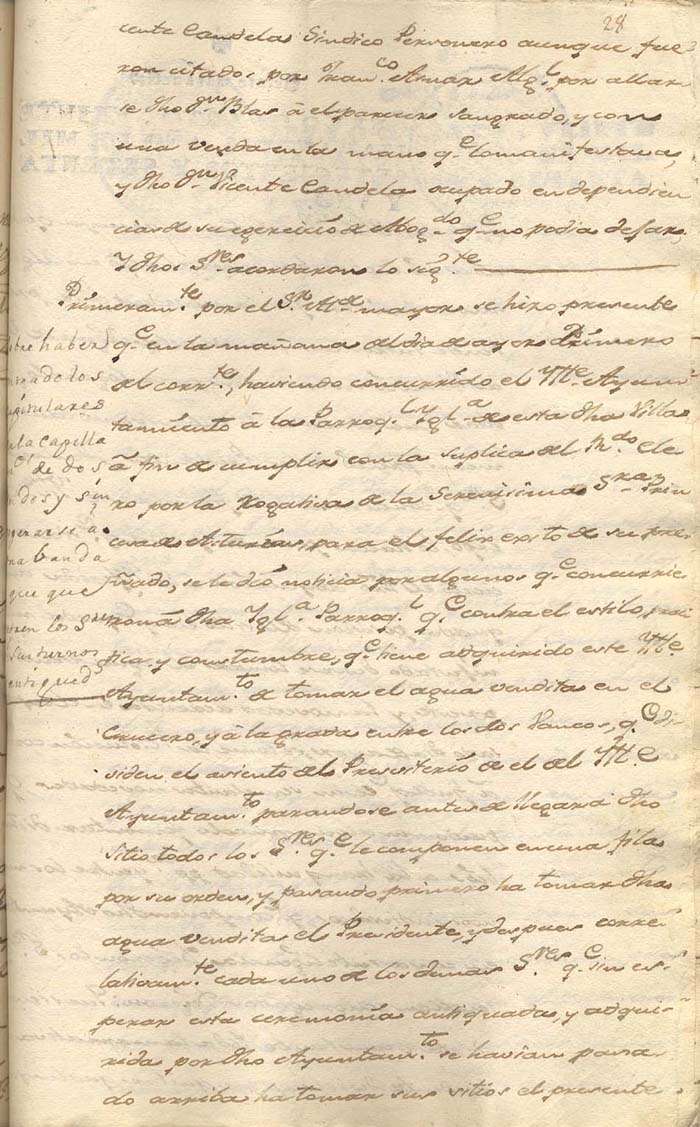 28
cente Candela Sindico Personero aunque fue-
ron citados por Fran.co Aznar Alg.l por allar-
se dho d.n Blas â el parecer sangrado, y con
una venda en la mano q.e lo manifestava,
y dho d.n Vicente Candela ocupado en dependen
cias de su egercicio de Abog.do q.e no podia dejar,
Y dhos S.res acordaron lo sig.te
Primeram.te por el S.r Al.de mayor se hizo presente
q.e en la mañana del dia de ayer Primero
del corr.te, haviendo concurrido el Itt.e Ayun-
tamiento â la Parroq.l Ygl.a de esta dha Villa
â fin de cumplir con la suplica del Rdo Cle-
ro por la Rogativa de la Serenisima S.ra Prin
cesa de Asturias, para el feliz exito de su pre-
ñado, se le dió noticia por algunos q.e concurrie-
ron â dha Ygl.a Parroq.l q.e contra el estilo, prac-
tica, y constumbre, q.e tiene adquirido este Itt.e
Ayuntam.to de tomar el agua vendita en el
Crucero, y â la grada entre los dos Vancos, q.e di-
viden el asiento del Presviterio de el del Itt.e
Ayuntam.to parandose antes de llegar â dho
sitio todos los S.res q.e le componen en una fila
por su orden, y pasando primero ha tomar dha
agua vendita el Presidente, y despues corre-
lativam.te cada uno de los demas S.res q.e sin es-
perar esta ceremonia antiquada, y adqui-
rida por dho Ayuntam.to se havian pasa-
do arriba ha tomar sus sitios el presente
bre haber
mado los
apitulares
la Capilla
de dos
des y sin
perarse â
na banda
que que
ren los S.res
sus turnos
antigued.